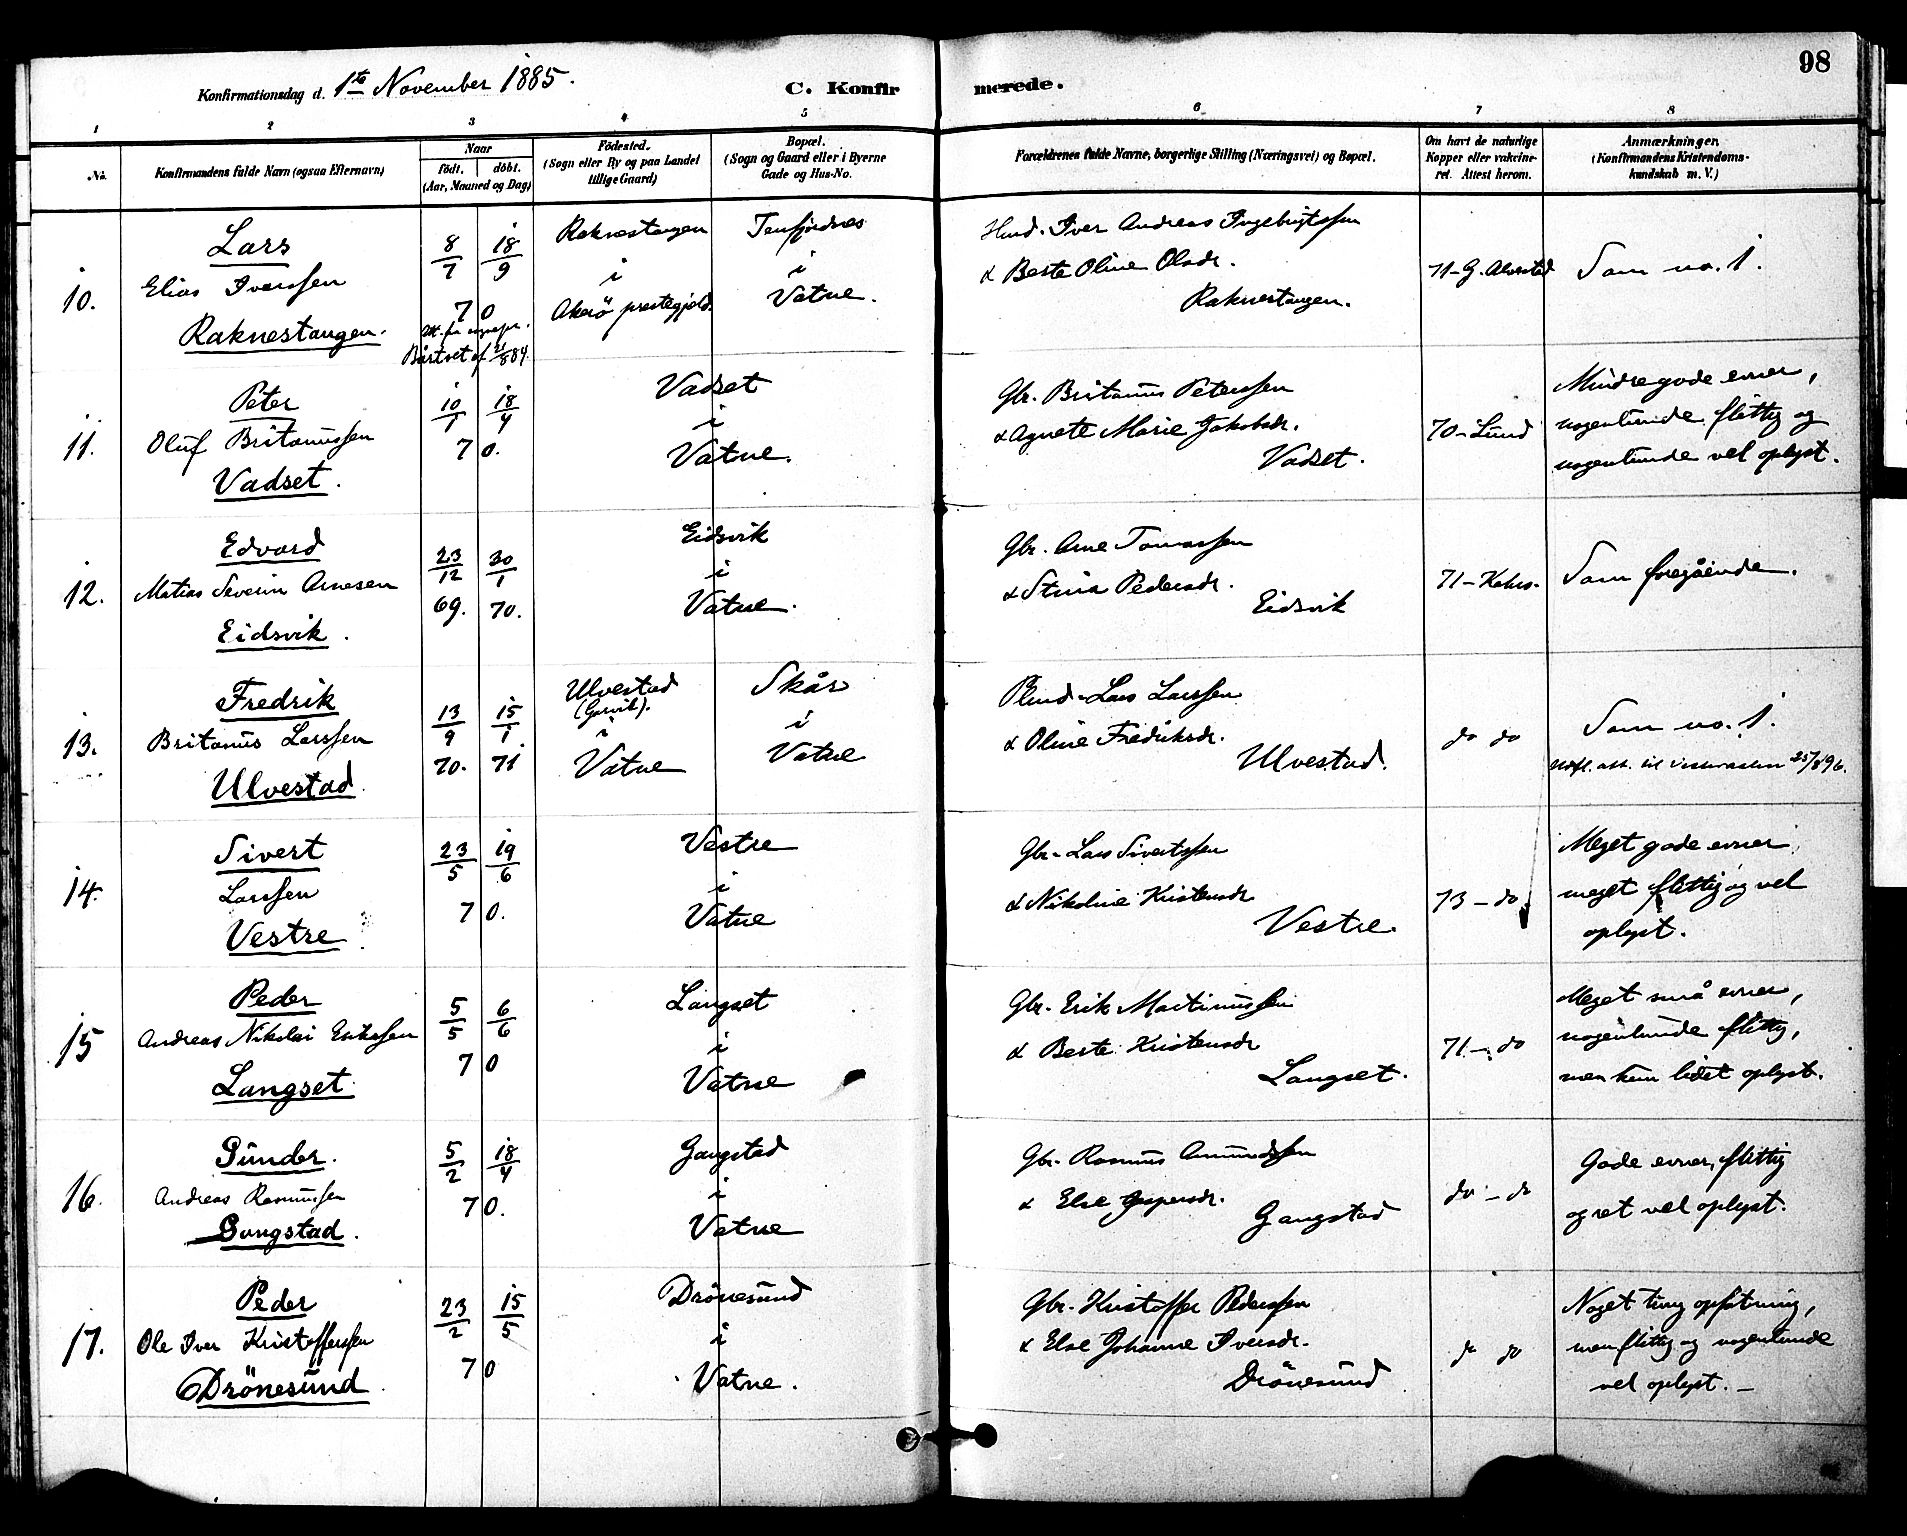 98
Konfirmationsdag d. 1te November 1885.
C. Konfirmerede.
1 2 3 4 5 6 7 8
No.
Konfirmandens fulde Navn (ogsaa Efternavn)
Naar
født. døbt.
(Aar, Maaned og Dag)
Fødested.
(Sogn eller By og paa Landet
tillige Gaard)
Bopæl.
(Sogn og Gaard eller i Byerne
Gade og Hus-No.
Forældrenes fulde Navne, borgerlige Stilling (Næringsvei) og Bopæl.
Om havt de naturlige
Kopper eller vakcine-
ret. Attest herom.
Anmærkninger.
(Konfirmandens Kristendoms-
kundskab m. V.)
10.
Lars
Elias Iverssen
Raknestangen.
8/7 18/9
70
Raknestangen
i
Akerö prestegjeld.
Tenfjordnes
i
Vatne.
Husd. Iver Andreas Ingebrigtssen
& Berte Oline Olsdr.
Raknestangen.
71-G. Alvestad
Som no. 1.
11.
Peter
Oluf Britanussen
Vadset.
10/1 18/4
70.
Vadset
i
Vatne.
Gbr. Britanus Peterssen
& Agnete Marie Jakobsdr.
Vadset.
70-Lund
Mindre gode evner,
nogenlunde flittig og
nogenlunde vel oplyst.
12.
Edvard
Matias Severin Arnesen
Eidsvik.
23/12 30/1
69. 70.
Eidsvik
i
Vatne.
Gbr. Arne Tomassen
& Stina Pedersdr.
Eidsvik
71-Kahrs.
Som foregåënde.
13.
Fredrik
Britanus Larssen
Ulvestad.
13/9 15/1
70. 71
Ulvestad
i
Vatne
Skår
i
Vatne
Lars Larssen
& Oline Fredriksdr.
Ulvestad.
do do
Som no. 1.
25/8 96.
14.
Sivert
Larssen
Vestre
23/5 19/6
70.
Vestre
i
Vatne
Gbr. Lars Sivertssen
& Nikoline Kristensdr
Vestre.
73-do
Meget gode evner
meget flittig og vel
oplyst.
15
Peder
Andreas Nikolai Erikssen
Langset.
5/5 6/6
70
Langset
i
Vatne
Gbr. Erik Martinussen
& Berte Kristensdr
Langset.
71-do
Meget små evner,
nogenlunde flittig,
men kun lidet oplyst.
16.
Gunder.
Andreas Rasmussen
Gangstad.
5/2 18/4
70.
Gangstad
i
Vatne
Gbr. Rasmus Amundssen
& Else Jespersdr.
Gangstad
do - do
Gode evner, flittig
og ret vel oplyst.
17.
Peder
Ole Iver Kristofferssen
Drönesund.
23/2 15/5
70
Drönesund
i
Vatne.
Gbr. Kristoffer Pederssen
& Else Johanne Iversdr.
Drönesund
do do
Noget tung opfatning,
men flittig og nogenlunde
vel oplyst.-